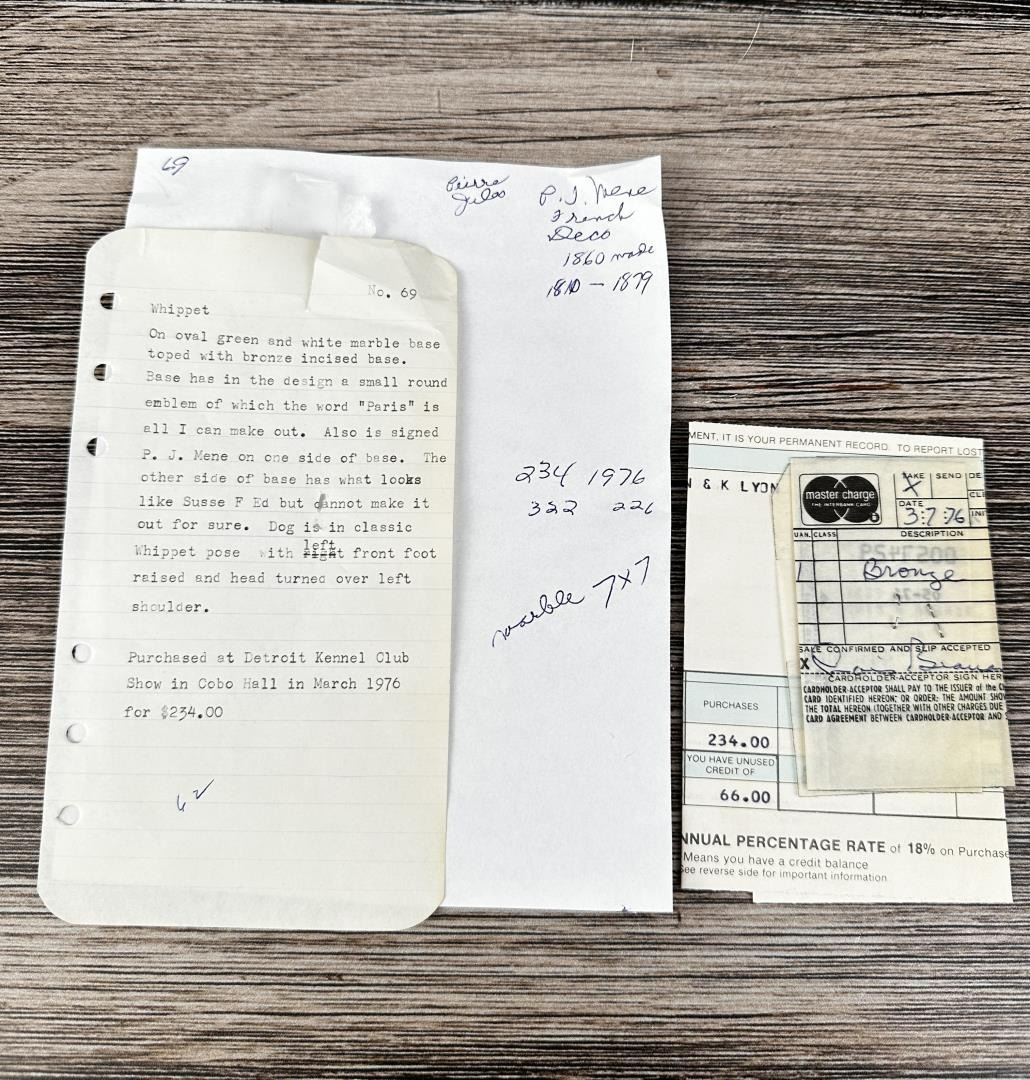 69
Pierre
Jules
P. J. Mene
French
Deco
1860 made
1810 — 1879
234 1976
322 226
marble 7x7
No. 69
Whippet
On oval green and white marble base
toped with bronze incised base.
Base has in the design a small round
emblem of which the word "Paris" is
all I can make out. Also is signed
P. J. Mene on one side of base. The
other side of base has what looks
like Susse F Ed but cannot make it
out for sure. Dog is in classic
left
Whippet pose with right front foot
raised and head turned over left
shoulder.
Purchased at Detroit Kennel Club
Show in Cobo Hall in March 1976
for $234.00
MENT, IT IS YOUR PERMANENT RECORD. TO REPORT LOST
& K LYON
PURCHASES
234.00
YOU HAVE UNUSED
CREDIT OF
66.00
NNUAL PERCENTAGE RATE of 18% on Purchase
Means you have a credit balance
See reverse side for important information.
master charge
THE INTERBANK CARD
TAKE SEND DE
X
CLE
DATE
3-7-76
INI
UAN. CLASS DESCRIPTION
1 Bronze
SALE CONFIRMED AND SLIP ACCEPTED
X
CARDHOLDER-ACCEPTOR SIGN HER
CARDHOLDER-ACCEPTOR SHALL PAY TO THE ISSUER of the C
CARD IDENTIFIED HEREON; OR ORDER; THE AMOUNT SHO
THE TOTAL HEREON (TOGETHER WITH OTHER CHARGES DUE
CARD AGREEMENT BETWEEN CARDHOLDER-ACCEPTOR AND